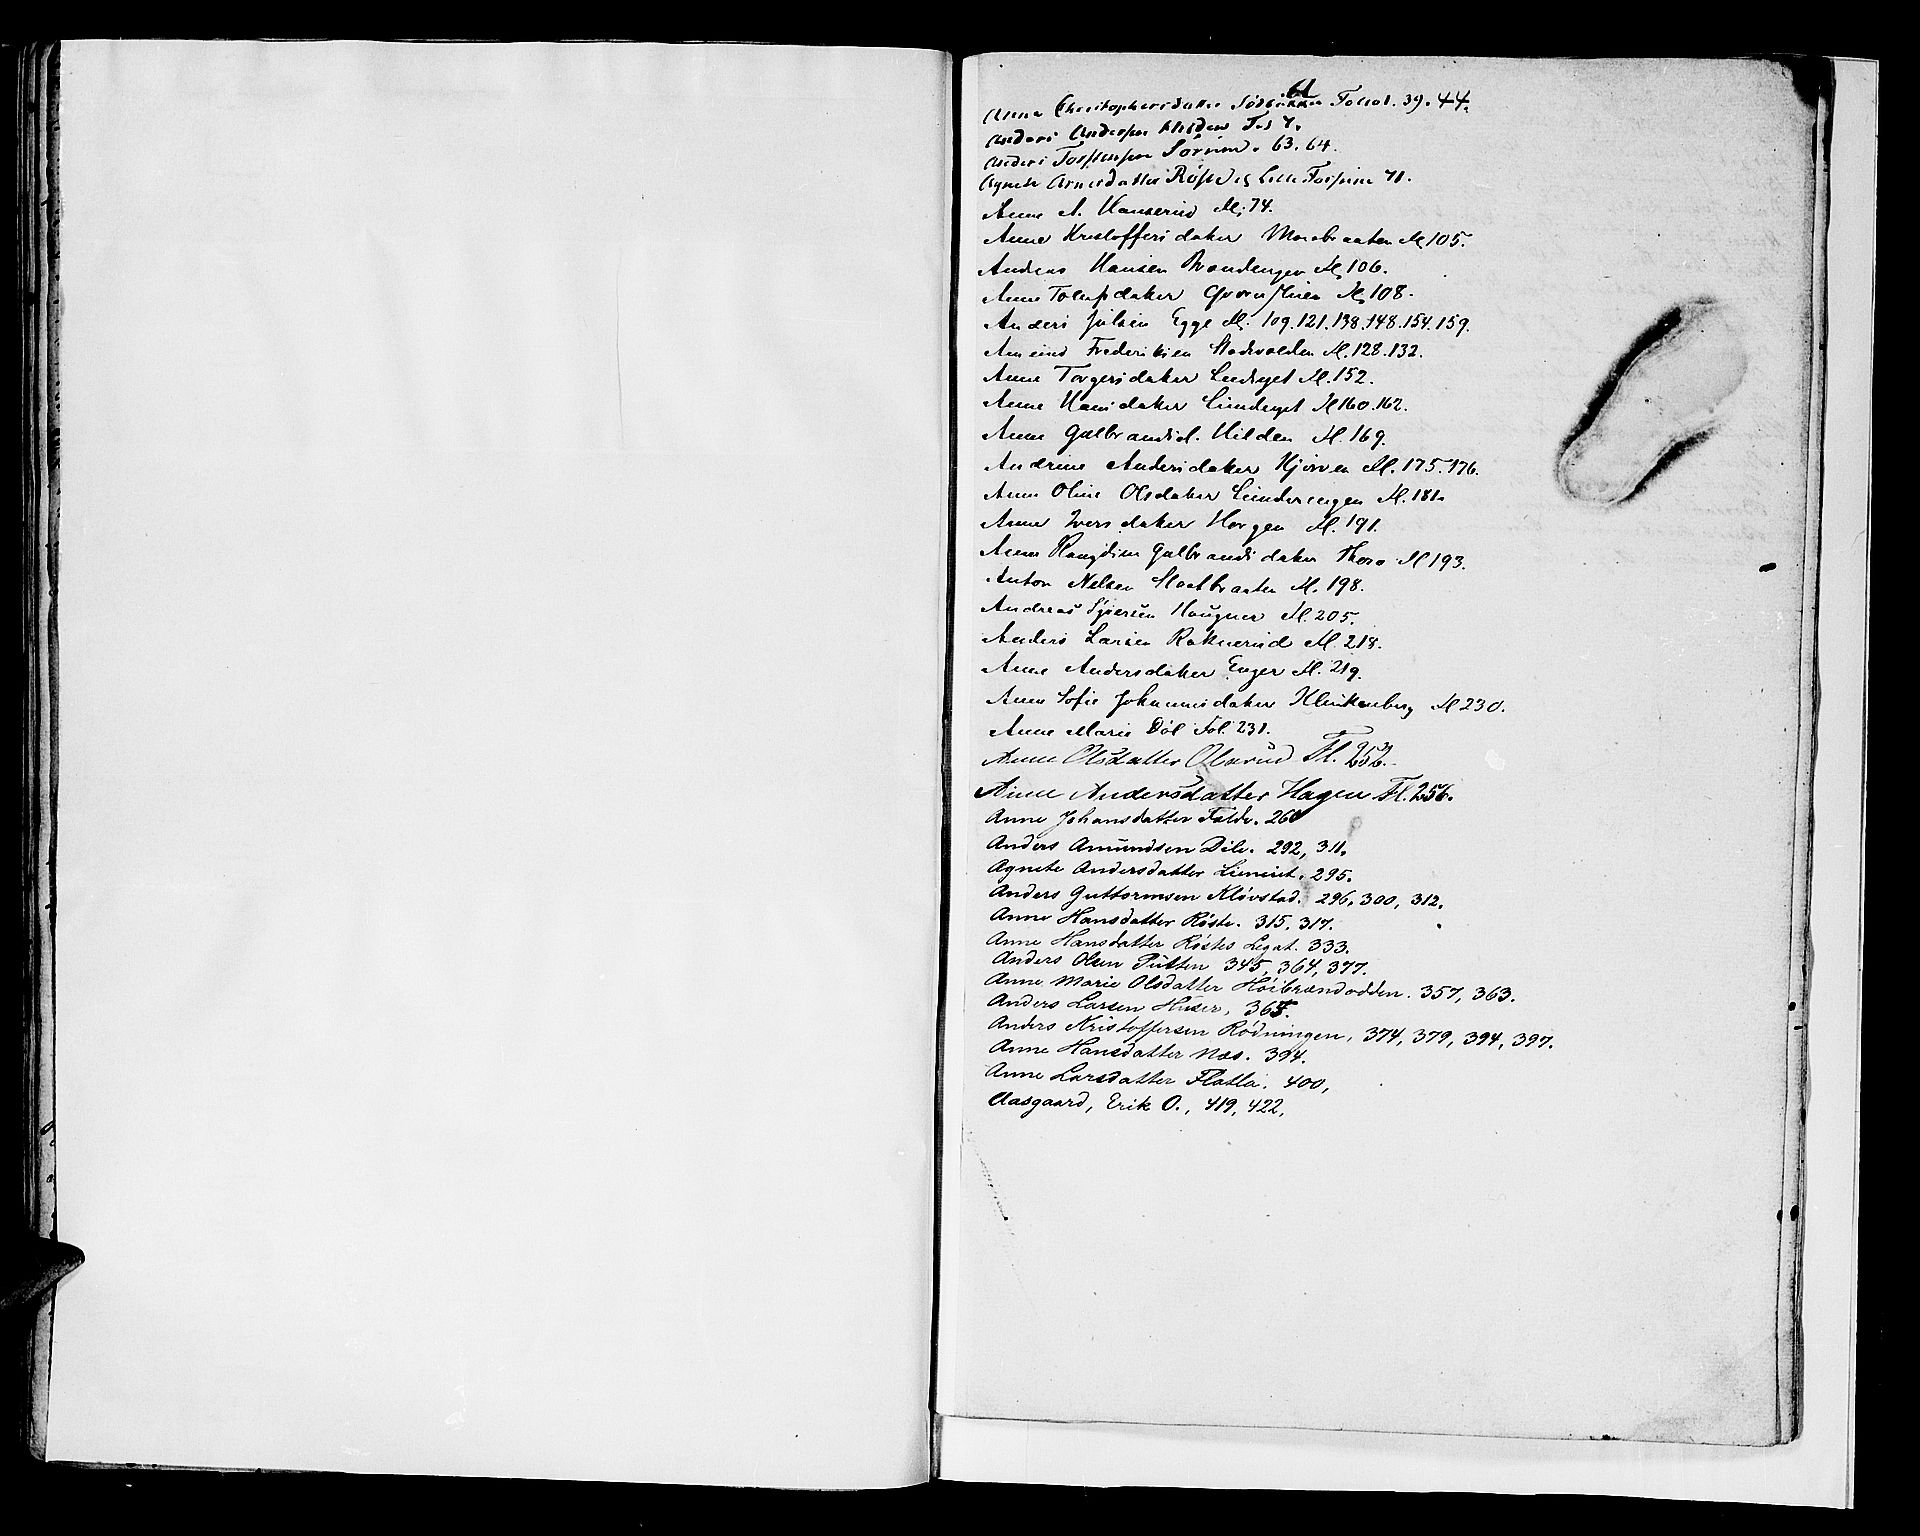 A
Anne Christophersdatter Folio 1. 39. 44.
Anders Andersen Fol 7.
Anders Torstensen Sørum. 63. 64.
Agnete Arnesdatter Røste Lille 71.
Anne A. Hauserud M. 74.
Anne Kristoffersdatter Morabraaten M. 105.
Andreas Hansen Brandengen M. 106.
Anne datter M. 108.
Anders Julsen Egge M. 109. 121. 138. 148. 154. 159.
Amund Frederiksen Stadsvolden M. 128. 132.
Anne Torgersdatter Lindsget M. 152.
Anne Hansdatter M 160. 162.
Anne Gulbrandsd. Hilden M. 169.
Andrine Andersdatter Hjørven M. 175. 176.
Anne Oline Olsdatter Lunderengen M. 181.
Anne Iversdatter Horgen M. 191.
Anne Gulbrandsdatter Thoro M 193.
Anton Nelsen Slaatbraaten M. 198.
Andreas Syversen Haugner M. 205.
Anders Larsen Roknerud M. 218.
Anne Andersdatter Enger M. 219.
Anne Sofie Johannesdatter Klinkenberg M 230.
Anne Marie Døl Fol. 231.
Anne Olsdatter Olsrud Fl. 252.
Anne Andersdatter Hagen Fl. 256.
Anne Johansdatter Falde. 260
Anders Amundsen Dile. 292, 311.
Agnete Andersdatter Limeist. 295.
Anders Guttormsen Kløvstad. 296, 300, 312.
Anne Hansdatter Røste. 315, 317.
Anne Hansdatter Røstes Legat. 333.
Anders Olsen Putten 345, 364, 377.
Anne Marie Olsdatter Høibrændodden. 357, 363.
Anders Larsen Huser, 365.
Anders Kristoffersen Rødningen, 374, 379, 394, 397.
Anne Hansdatter Næs. 394.
Anne Larsdatter Flatla. 400,
Aasgaard, Erik O., 419, 422,